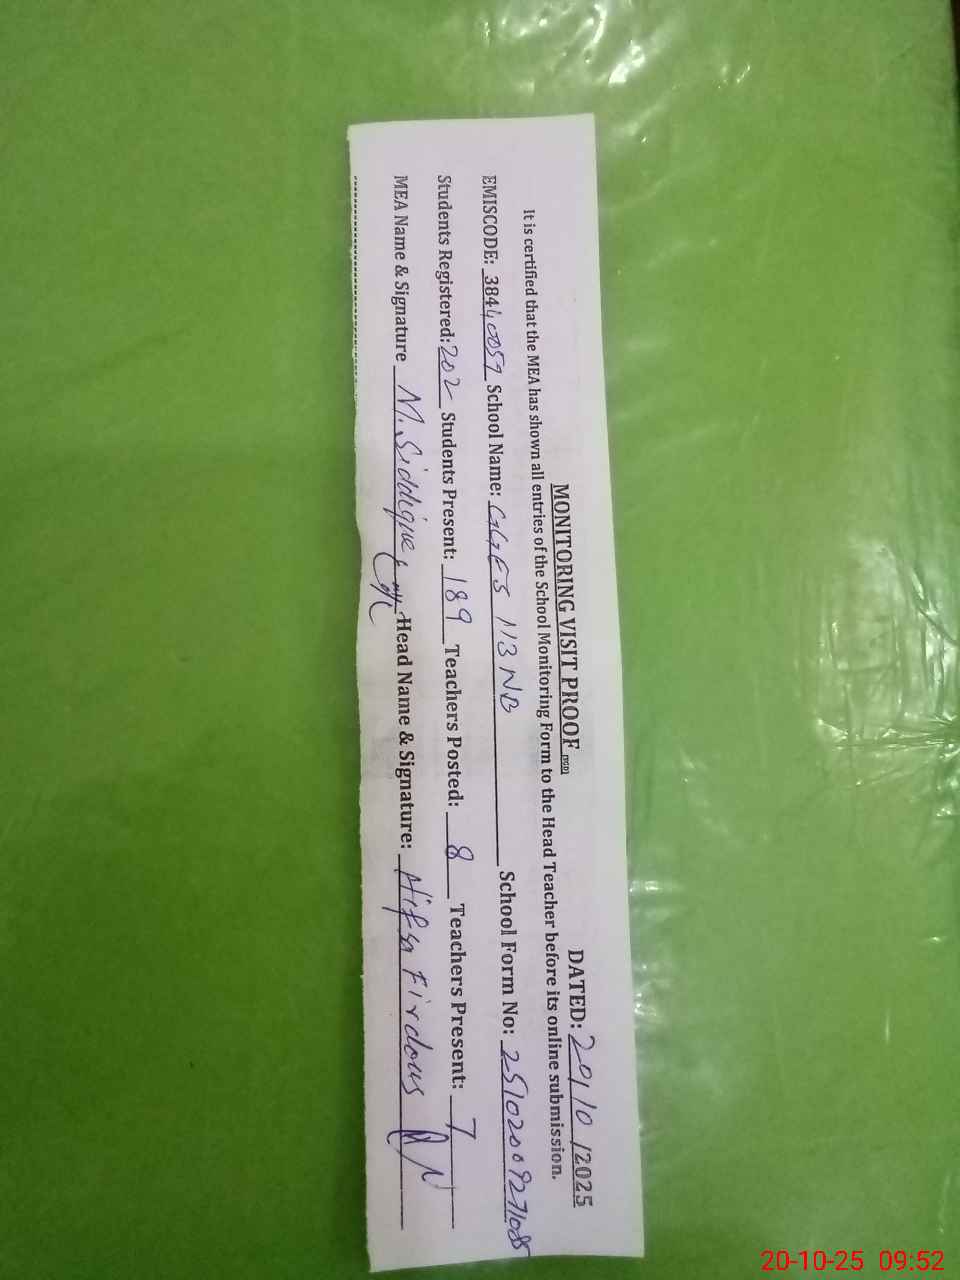 MONITORING VISIT PROOF
DATED: 20/10/2025
It is certified that the MEA has shown all entries of the School Monitoring Form to the Head Teacher before its online submission.
EMISCODE: 38440059 School Name: GGES 113 NB School Form No:
Students Registered: 202 Students Present: 189 Teachers Posted: 8 Teachers Present: 7
MEA Name & Signature M. Siddique Head Name & Signature: Firdous
20-10-25 09:52